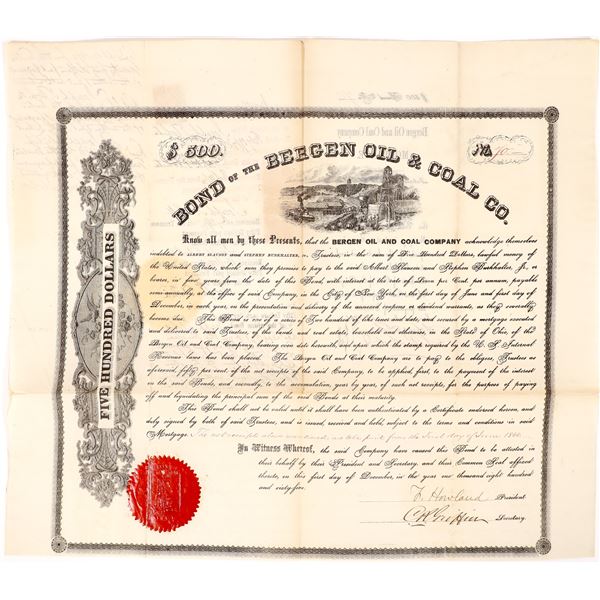 $ 500.
No.
BOND OF THE BERGEN OIL & COAL CO.
Know all men by these Presents, that the BERGEN OIL AND COAL COMPANY acknowledge themselves
indebted to ALBERT SLAUSON and STEPHEN BURKHALTER, JR., Trustees, in the sum of Five Hundred Dollars, lawful money of
the United States, which sum they promise to pay to the said Albert Slauson and Stephen Burkhalter, Jr., or
bearer, in five years from the date of this Bond, with interest at the rate of Seven per Cent. per annum, payable
semi-annually, at the office of said Company, in the City of New York, on the first day of June and first day of
December, in each year, on the presentation and delivery of the annexed coupons or dividend warrants, as they severally
become due. This Bond is one of a series of Two hundred of like tenor and date, and secured by a mortgage executed
and delivered to said Trustees, of the lands and real estate, leasehold and otherwise, in the State of Ohio, of the
Bergen Oil and Coal Company, bearing even date herewith, and upon which the stamp required by the U. S. Internal
Revenue laws has been placed. The Bergen Oil and Coal Company are to pay to the obligees, Trustees as
aforesaid, fifty per cent. of the net receipts of the said Company, to be applied, first, to the payment of the interest
on the said Bonds, and secondly, to the accumulation, year by year, of such net receipts, for the purpose of paying
off and liquidating the principal sum of the said Bonds at their maturity.
This Bond shall not be valid until it shall have been authenticated by a Certificate endorsed hereon, and
duly signed by both of said Trustees, and is issued, received and held, subject to the terms and conditions in said
Mortgage. from the first day of June 1866
In Witness Whereof, the said Company have caused this Bond to be attested in
their behalf by their President and Secretary, and their Common Seal affixed
thereto, on this first day of December, in the year one thousand eight hundred
and sixty-five.
F. Howland President
C W Griffin Secretary.
FIVE HUNDRED DOLLARS